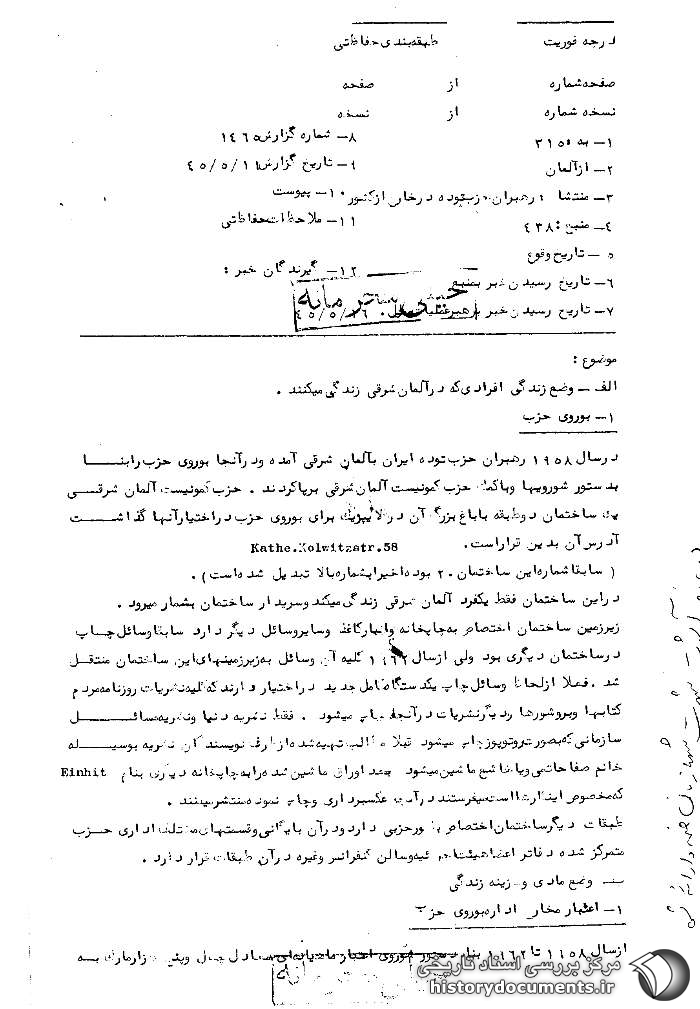 درجه فوریت طبقه‌بندی حفاظتی
صفحه شماره از صفحه
نسخه شماره از نسخه
۱- به ۳۱۵۰ ۸- شماره گزارش ۱۴۶۵
۲- از آلمان ۹- تاریخ گزارش ۴۵/۵/۱۱
۳- منشاء : رهبران حزب توده در خارج از کشور ۱۰- پیوست
۴- منبع : ۴۳۸ ۱۱- ملاحظات حفاظتی
۵- تاریخ وقوع
۱۲- گیرندگان خبر :
۶- تاریخ رسیدن خبر بمنبع
خیلی محرمانه
۷- تاریخ رسیدن خبر برهبر عملیات ۴۵/۵/۱۶
موضوع :
الف - وضع زندگی افرادی که در آلمان شرقی زندگی میکنند .
۱- بوروی حزب
در سال ۱۹۵۸ رهبران حزب توده ایران بآلمان شرقی آمده و در آنجا بوروی حزب را بنا
بدستور شورویها و با کمک حزب کمونیست آلمان شرقی برپا کردند . حزب کمونیست آلمان شرقی
یک ساختمان دو طبقه با باغ بزرگ آن در لایپزیک برای بوروی حزب در اختیار آنها گذاشت
آدرس آن بدین قرار است . Kathe.Kolwitzstr.58
( سابقا شماره این ساختمان ۲۰ بوده اخیرا بشماره بالا تبدیل شده است ) .
در این ساختمان فقط یکفرد آلمان شرقی زندگی میکند و سریدار ساختمان بشمار میرود .
زیرزمین ساختمان اختصاص به چاپخانه و انبار کاغذ و سایر وسائل دیگر دارد سابقا وسائل چاپ
در ساختمان دیگری بود ولی از سال ۱۹۶۲ کلیه آن وسائل به زیرزمینهای این ساختمان منتقل
شد . فعلا از لحاظ وسائل چاپ یکدستگاه کامل جدید در اختیار دارند که کلیه نشریات روزنامه مردم
کتابها و بروشورها و دیگر نشریات در آنجا چاپ میشود . فقط نشریه دنیا و نشریه مسائل
سازمانی که بصورت روتوپوز چاپ میشود قبلا مطالب تهیه شده از طرف نویسندگان نشریه بوسیله
خانم صفا حاتمی و یا خاشع ماشین میشود بعد اوراق ماشین شده را به چاپخانه دیگری بنام Einhit
که مخصوص اینکار است میفرستند در آنجا عکسبرداری و چاپ نموده منتشر میکنند .
طبقات دیگر ساختمان اختصاص بامور حزبی دارد و در آن بایگانی و قسمتهای مختلف اداری حزب
متمرکز شده دفاتر اعضا هیئت اجرائیه و سالن کنفرانس و غیره در آن طبقات قرار دارد .
ب- وضع مادی و هزینه زندگی
۱- اعتبار مخارج اداره بوروی حزب
از سال ۱۹۵۸ تا ۱۹۶۲ بنا بدستور شوروی اعتبار ماهیانه‌ای معادل چهل و پنج هزار مارک به
مرکز بررسی اسناد تاریخی
historydocuments.ir